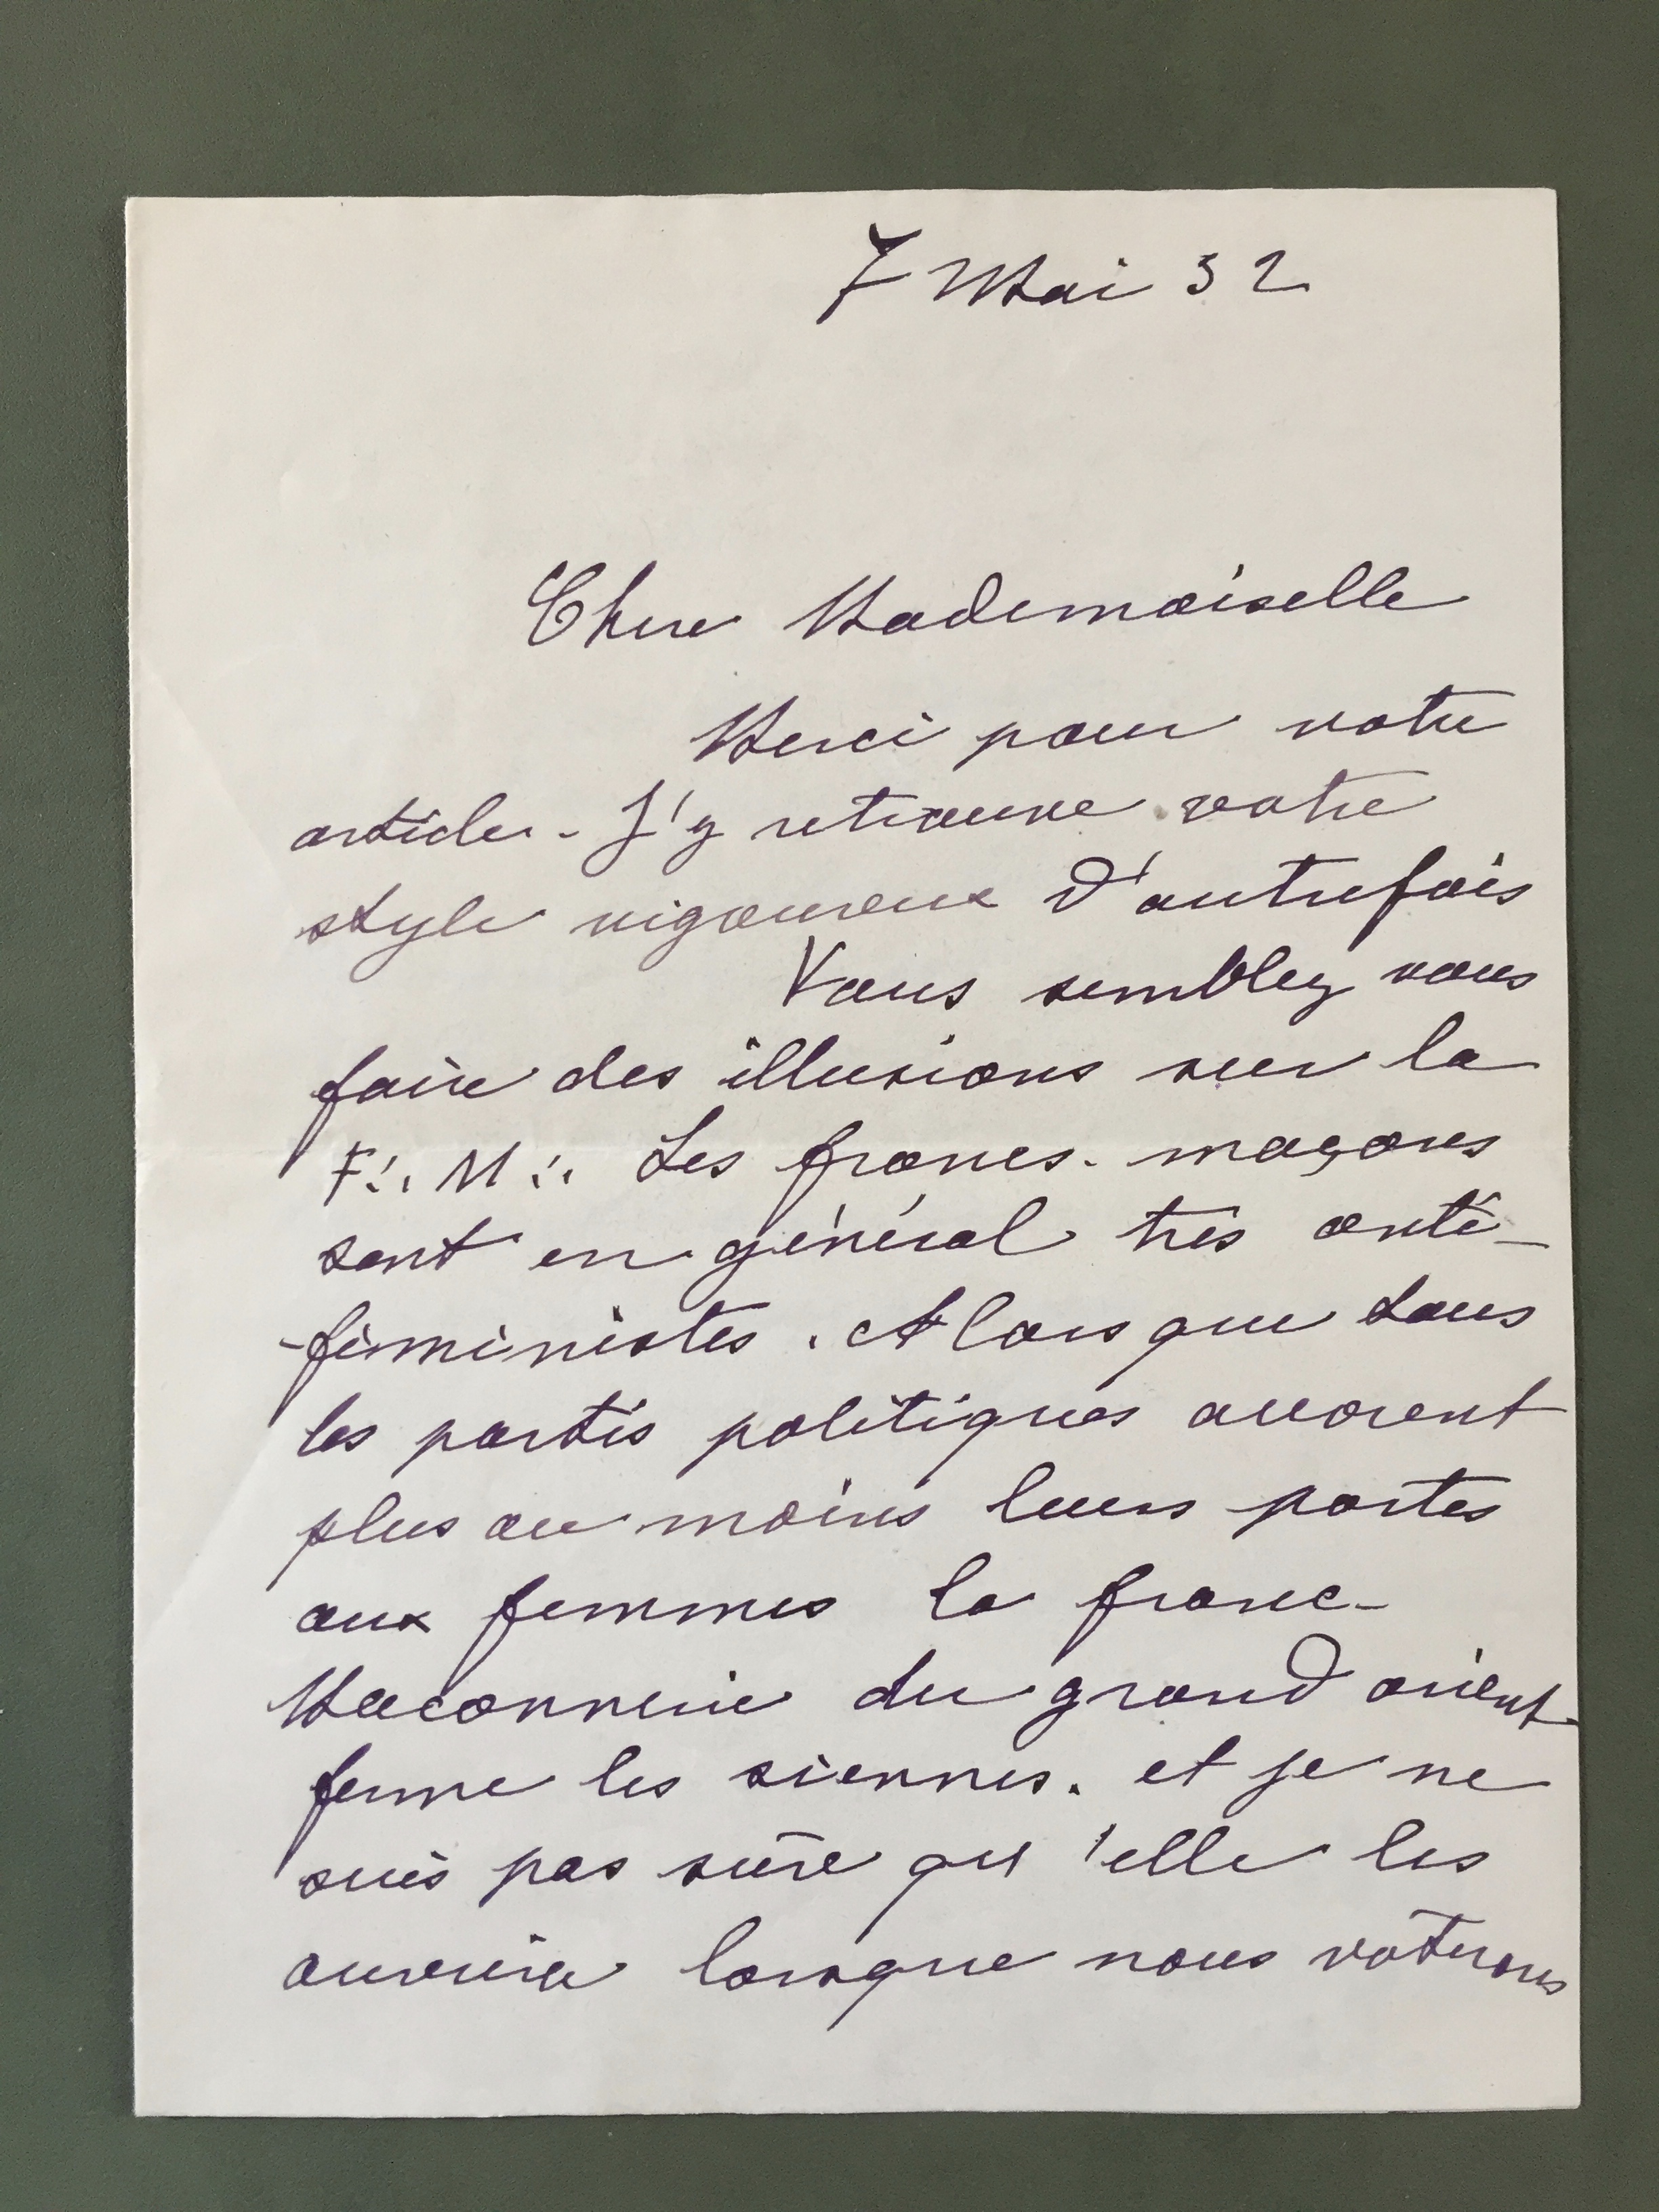 7 Mai 32
Chere Mademoiselle
Merci pour votre
article - J'y retrouve votre
style vigoureux d'autrefois
Vous semblez vous
faire des illusions sur la
F∴ M∴ Les francs-maçons
sont en général très anti-
-féministes. Alors que tous
les partis politiques ouvrent
plus ou moins leurs portes
aux femmes la franc-
Maconnerie du grand orient
ferme les siennes. et je ne
suis pas sûre qu'elle les
ouvrira lorsque nous voterons